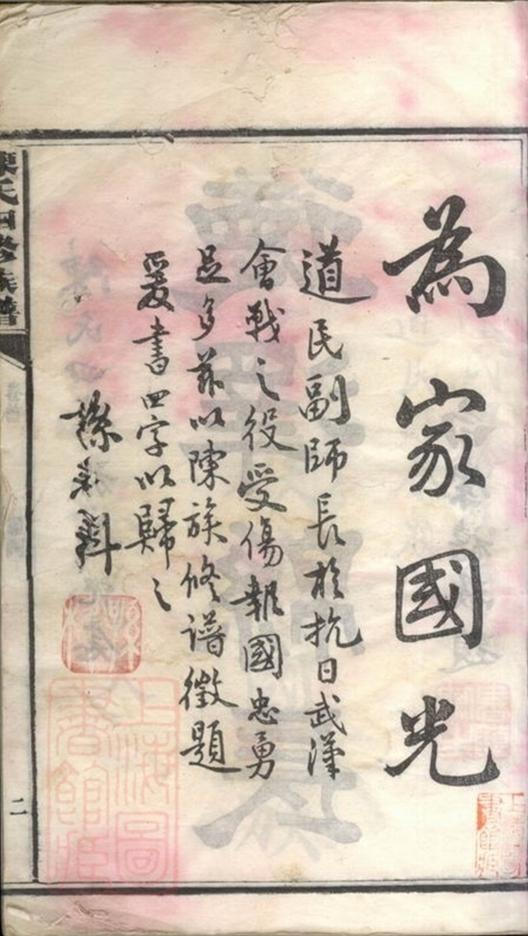 為家國光
道民副師長於抗日武漢
會戰之役受傷報國忠勇
足多茲以陳族修譜徵題
爰書四字以歸之
陳氏四修族譜
二
上海圖書館藏